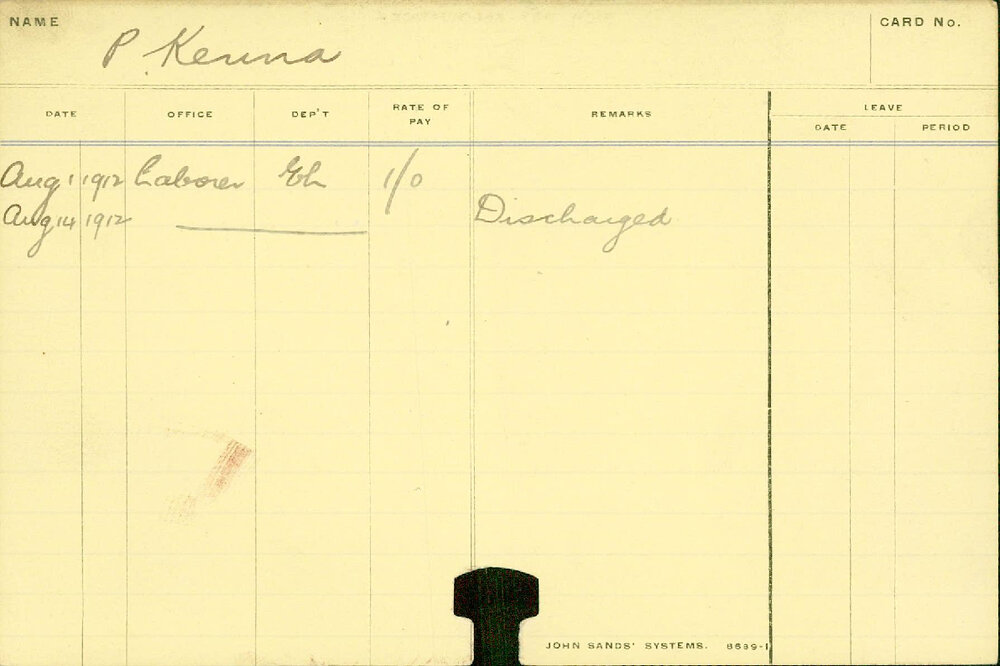 NAME
P. Kenna
CARD No.
DATE OFFICE DEP'T RATE OF PAY REMARKS LEAVE
DATE PERIOD
Aug 1 1912 Laborer Eh 1/0
Aug 14 1912 Discharged
JOHN SANDS' SYSTEMS. 8639-1